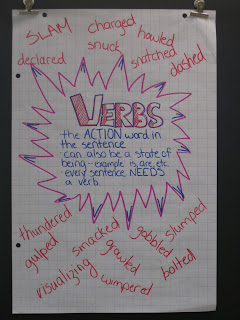 SLAM charged howled
declared snuck snatched
dashed
VERBS
the ACTION word in
the sentence
can also be a state of
being - example is, are, etc.
every sentence NEEDS
a verb.
thundered smacked gobbled slumped
gulped growled bolted
visualizing wimpered